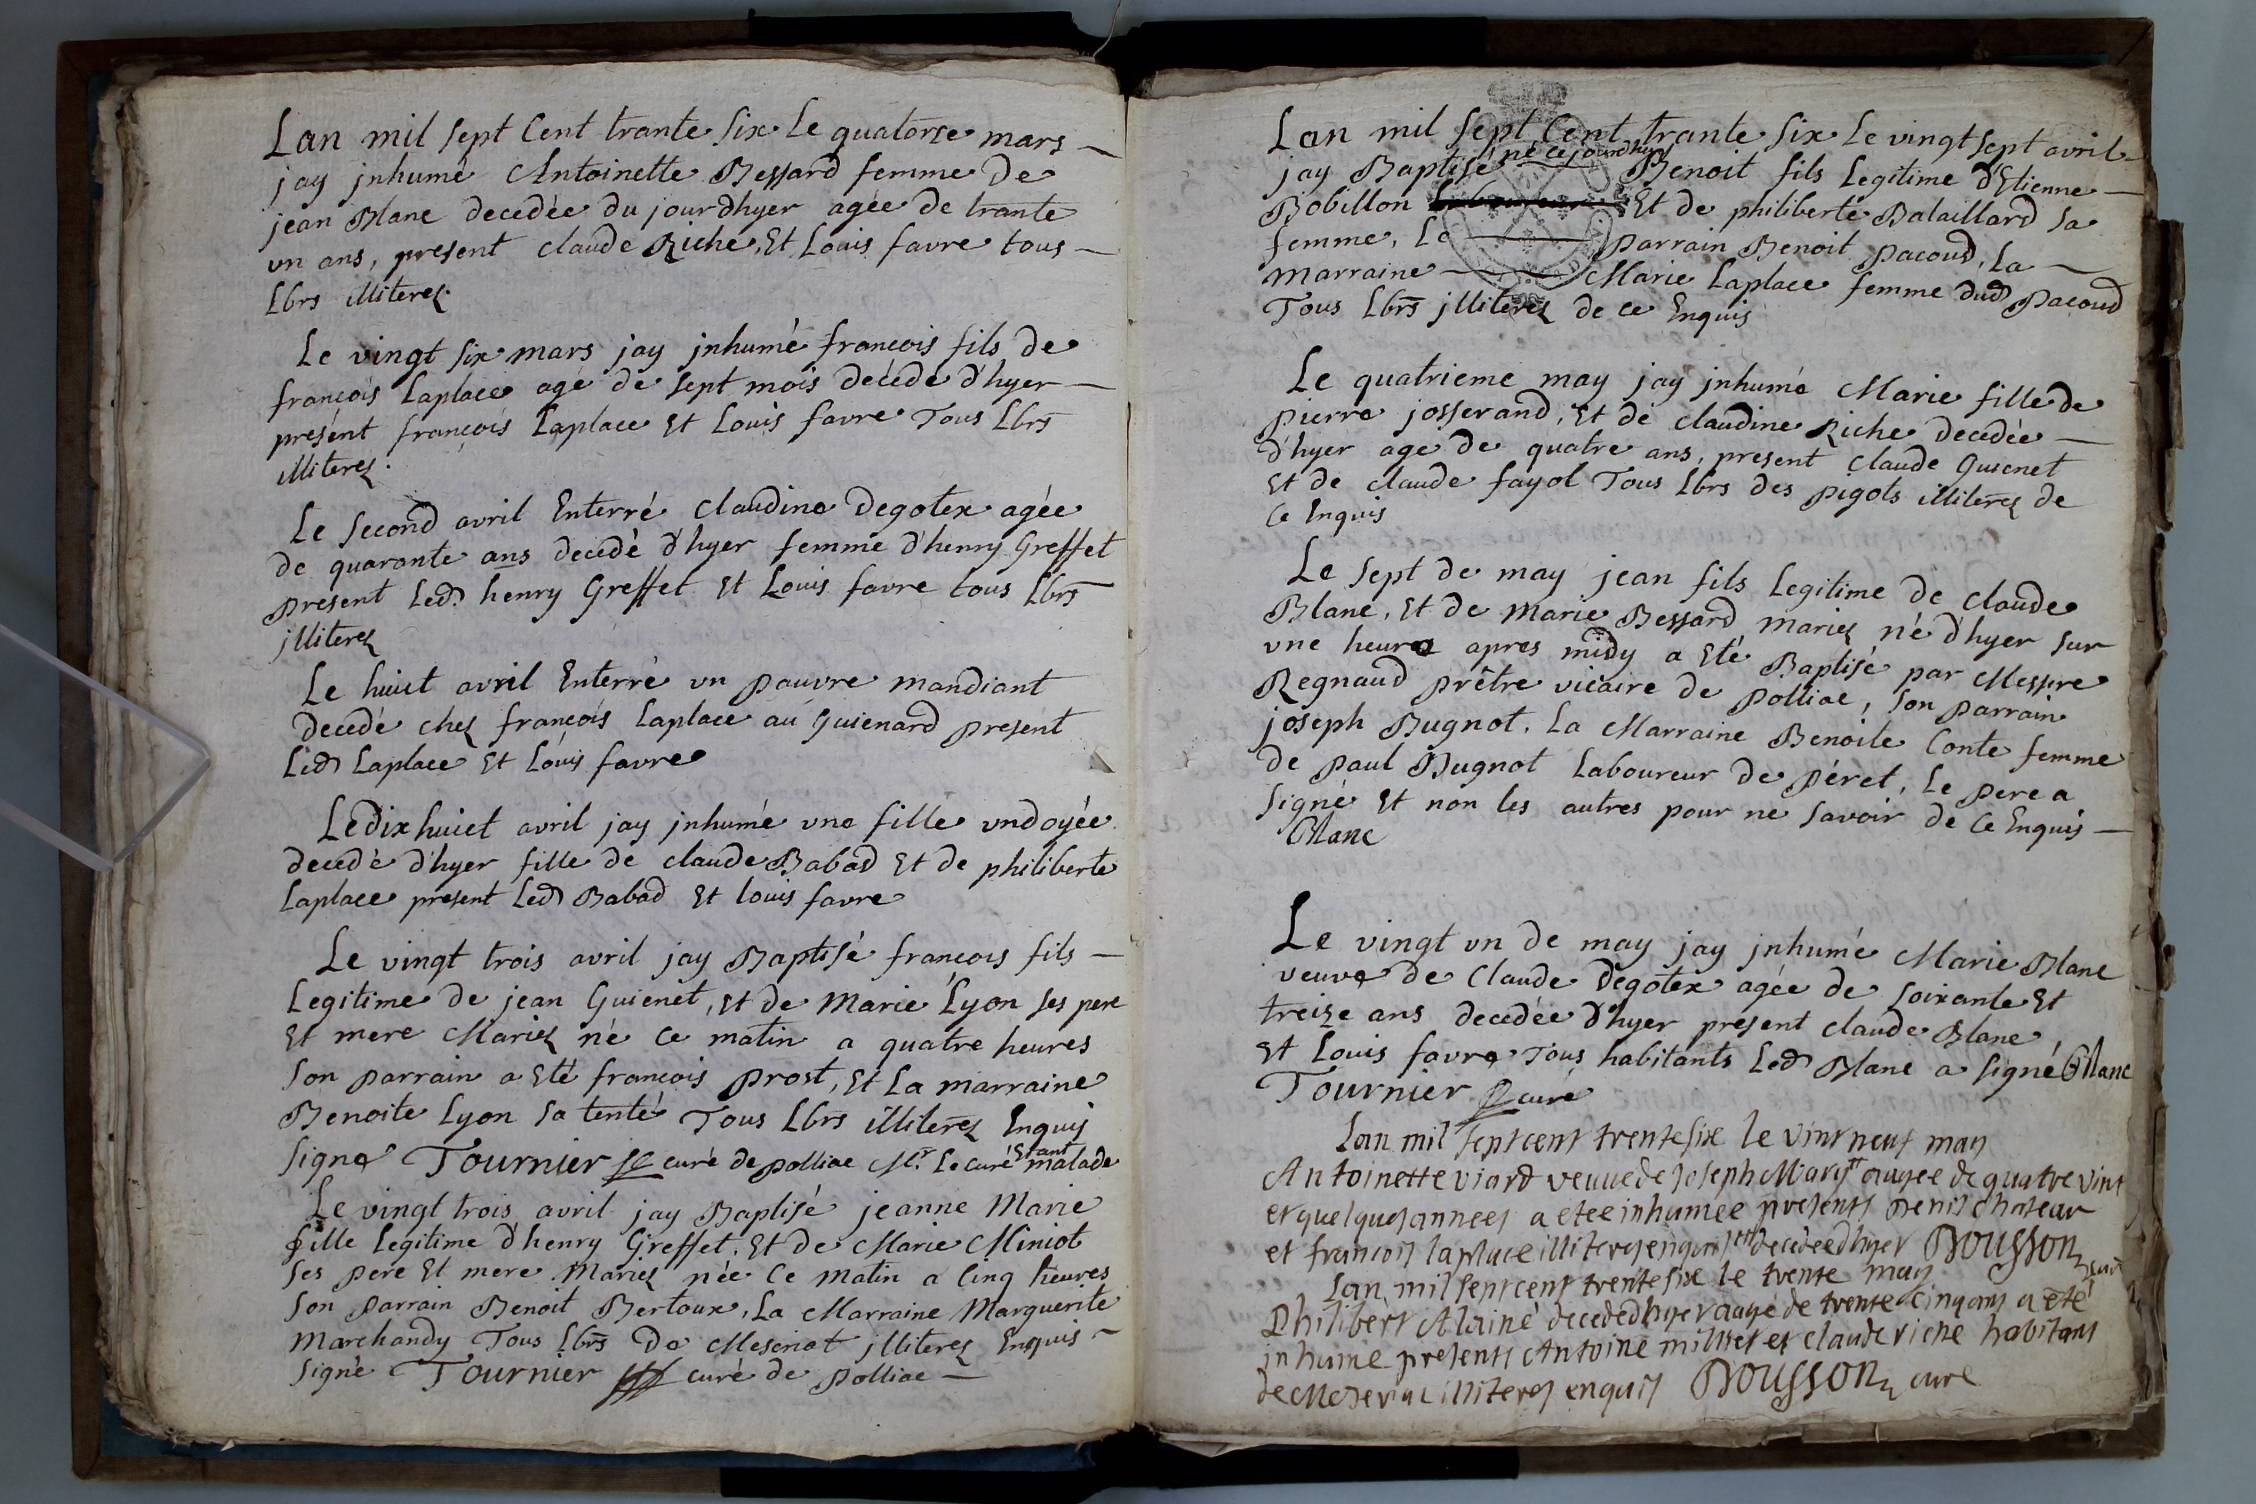 Lan mil sept Cent trante six Le quatorze mars
jay jnhumé Antoinette Bessard femme De
jean Blanc decedée du jourdhyer agée de trante
un ans, present claude Riche, Et Louis favre tous
Lbrs illiterez.
Le vingt six mars jay jnhumé françois fils de
françois Laplace agé de sept mois décédé d'hyer
présent françois Laplace Et Louis favre Tous Lbrs
illiterez.
Le second avril Enterré Claudine Degotex agée
de quarante ans decedé d'hyer femme d'henry Greffet
present Led. henry Greffet Et Louis favre tous Lbrs
jlliterez
Le huict avril Enterré un pauvre mandiant
decedé chez françois Laplace au Guienard present
Led Laplace Et Louis favre
Le dix huict avril jay jnhumé une fille undoyée
decedé d'hyer fille de claude Babad Et de philiberte
Laplace present Led Babad Et louis favre
Le vingt trois avril jay Baptisé françois fils
Legitime de jean Guienet, Et de Marie Lyon ses pere
Et mere Mariez né Ce matin a quatre heures
son parrain a Eté françois prost, Et La marraine
Benoite Lyon sa tente Tous Lbrs illiterez Enquis
signe Tournier curé de polliac Mr. Le curé Etant malade
Le vingt trois avril jay Baptisé jeanne Marie
fille Legitime d'henry Greffet. Et de Marie Miniot
ses pere Et mere Mariez née Ce matin a Cinq heures
son parrain Benoit Bertoux, La Marraine Marguerite
Marchandy Tous Lbrs De Meseriat jlliterez Enquis
signé Tournier curé de polliac
Lan mil sept Cent trante six Le vingt sept avril
jay Baptisé né ce jourdhuy Benoit fils Legitime d'Etienne
Bobillon Et de philiberte Balaillard sa
femme, Le parrain Benoit pacoud, La
marraine Marie Laplace femme dud pacoud
Tous Lbrs jlliterez de ce Enquis
Le quatrieme may jay jnhumé Marie fille de
pierre josserand, Et de claudine Riche decedée
d'hyer age de quatre ans, present Claude Guienet
Et de claude fayol Tous Lbrs des pigots illiterez de
Ce Enquis
Le sept de may jean fils Legitime de claude
Blanc, Et de Marie Bessard mariez né d'hyer sur
une heure apres midy a Eté Baptisé par Messire
Regnaud prêtre vicaire de polliac, son parrain
joseph Bugnot. La Marraine Benoite Conte femme
de paul Bugnot Laboureur de péret, Le pere a
signé Et non les autres pour ne savoir de Ce Enquis
Blanc
Le vingt un de may jay jnhumé Marie Blanc
veuve de Claude Degotex agée de soixante Et
treize ans decedée d'hyer present claude Blanc
Et Louis favre Tous habitants Led Blanc a signé Blanc
Tournier curé
Lan mil sept cent trente six le vint neuf may
Antoinette viard veuve de Joseph Mary augee de quatre vint
et quelques annees a etee inhumee presents Denis chateau
et francois laplace illiteres enquis decedee dhyer Bousson curé
Lan mil sept cent trente six le trente may
Philibert Alainé decede dhyer augé de trente cinq ans a eté
inhumé presents Antoine millet et claude riche habitans
de Meseriac illiteres enquis Bousson curé